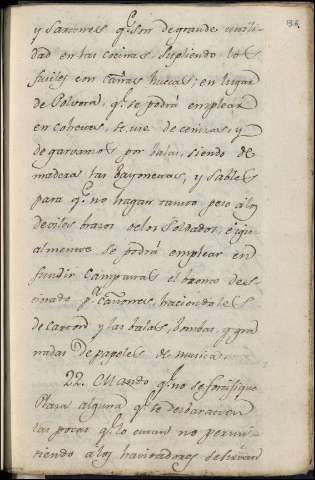 y sartenes q.e son de grande utili-
dad en las cocinas supliendo los
fusiles con cañas huecas; en lugar
de Polvora, q.e se podrá emplear
en cohetes, se use de cenizas, y
de garvanzos por balas, siendo de
madera las Bayonetas, y sables
para q.e no hagan tanto peso á los
deviles brazos de los soldados; é igu
almente se podrá emplear en
fundir campanas el bronce des-
tinado p.a cañones, haciendoles
de carton y las balas, bombas, y gra
nadas de papeles de musica.
22. Mando q.e no se fortifique
Plaza alguna q.e se desbaraten
las pocas q.e lo estan no permi-
tiendo á los havitadores